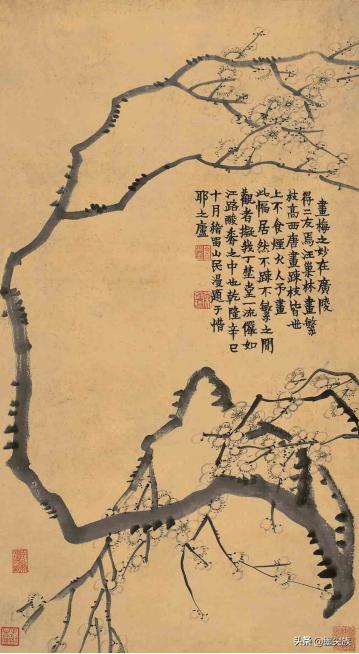 畫梅之妙在廣陵
得二友焉汪巢林畫繁
枝高西唐畫踈枝皆世
上不食煙火人予畫
此幅居然不踈不繁之間
觀者擬我丁埜堂一流儼如
江路酸香之中也乾隆辛巳
十月稽畱山民漫題于惜
耶之廬
头条